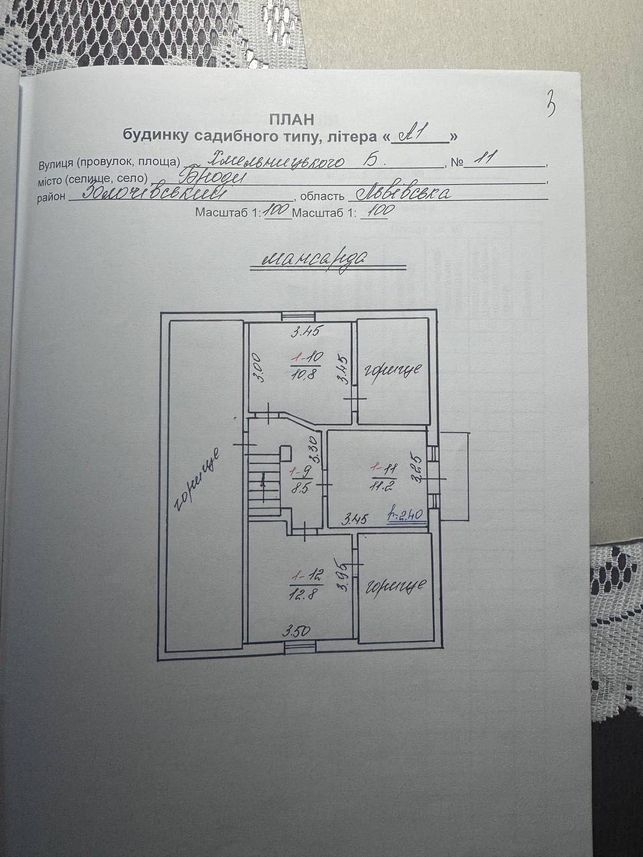 3
ПЛАН
будинку садибного типу, літера « А1 »
Вулиця (провулок, площа) Хмельницького Б. , № 11 ,
місто (селище, село) Броди ,
район Золочівський , область Львівська
Масштаб 1: 100 Масштаб 1: 100
мансарда
3.45
3.00
1-10
10.8
3.45
горище
горище
1-9
8.5
3.30
1-11
11.2
3.25
3.45
h=2.40
1-12
12.8
3.95
горище
3.50